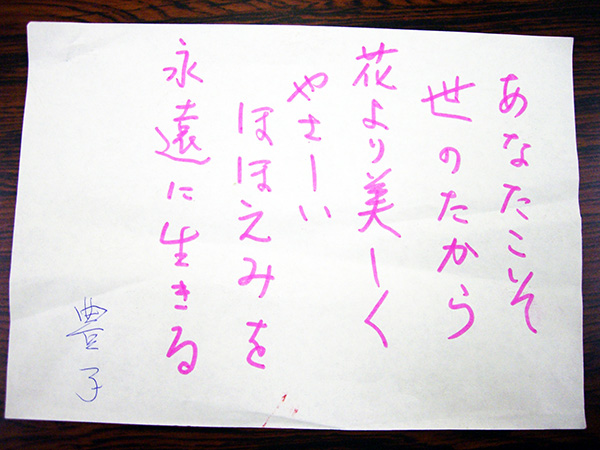 あなたこそ
世のたから
花より美しく
やさしい
ほほえみを
永遠に生きる
豊子